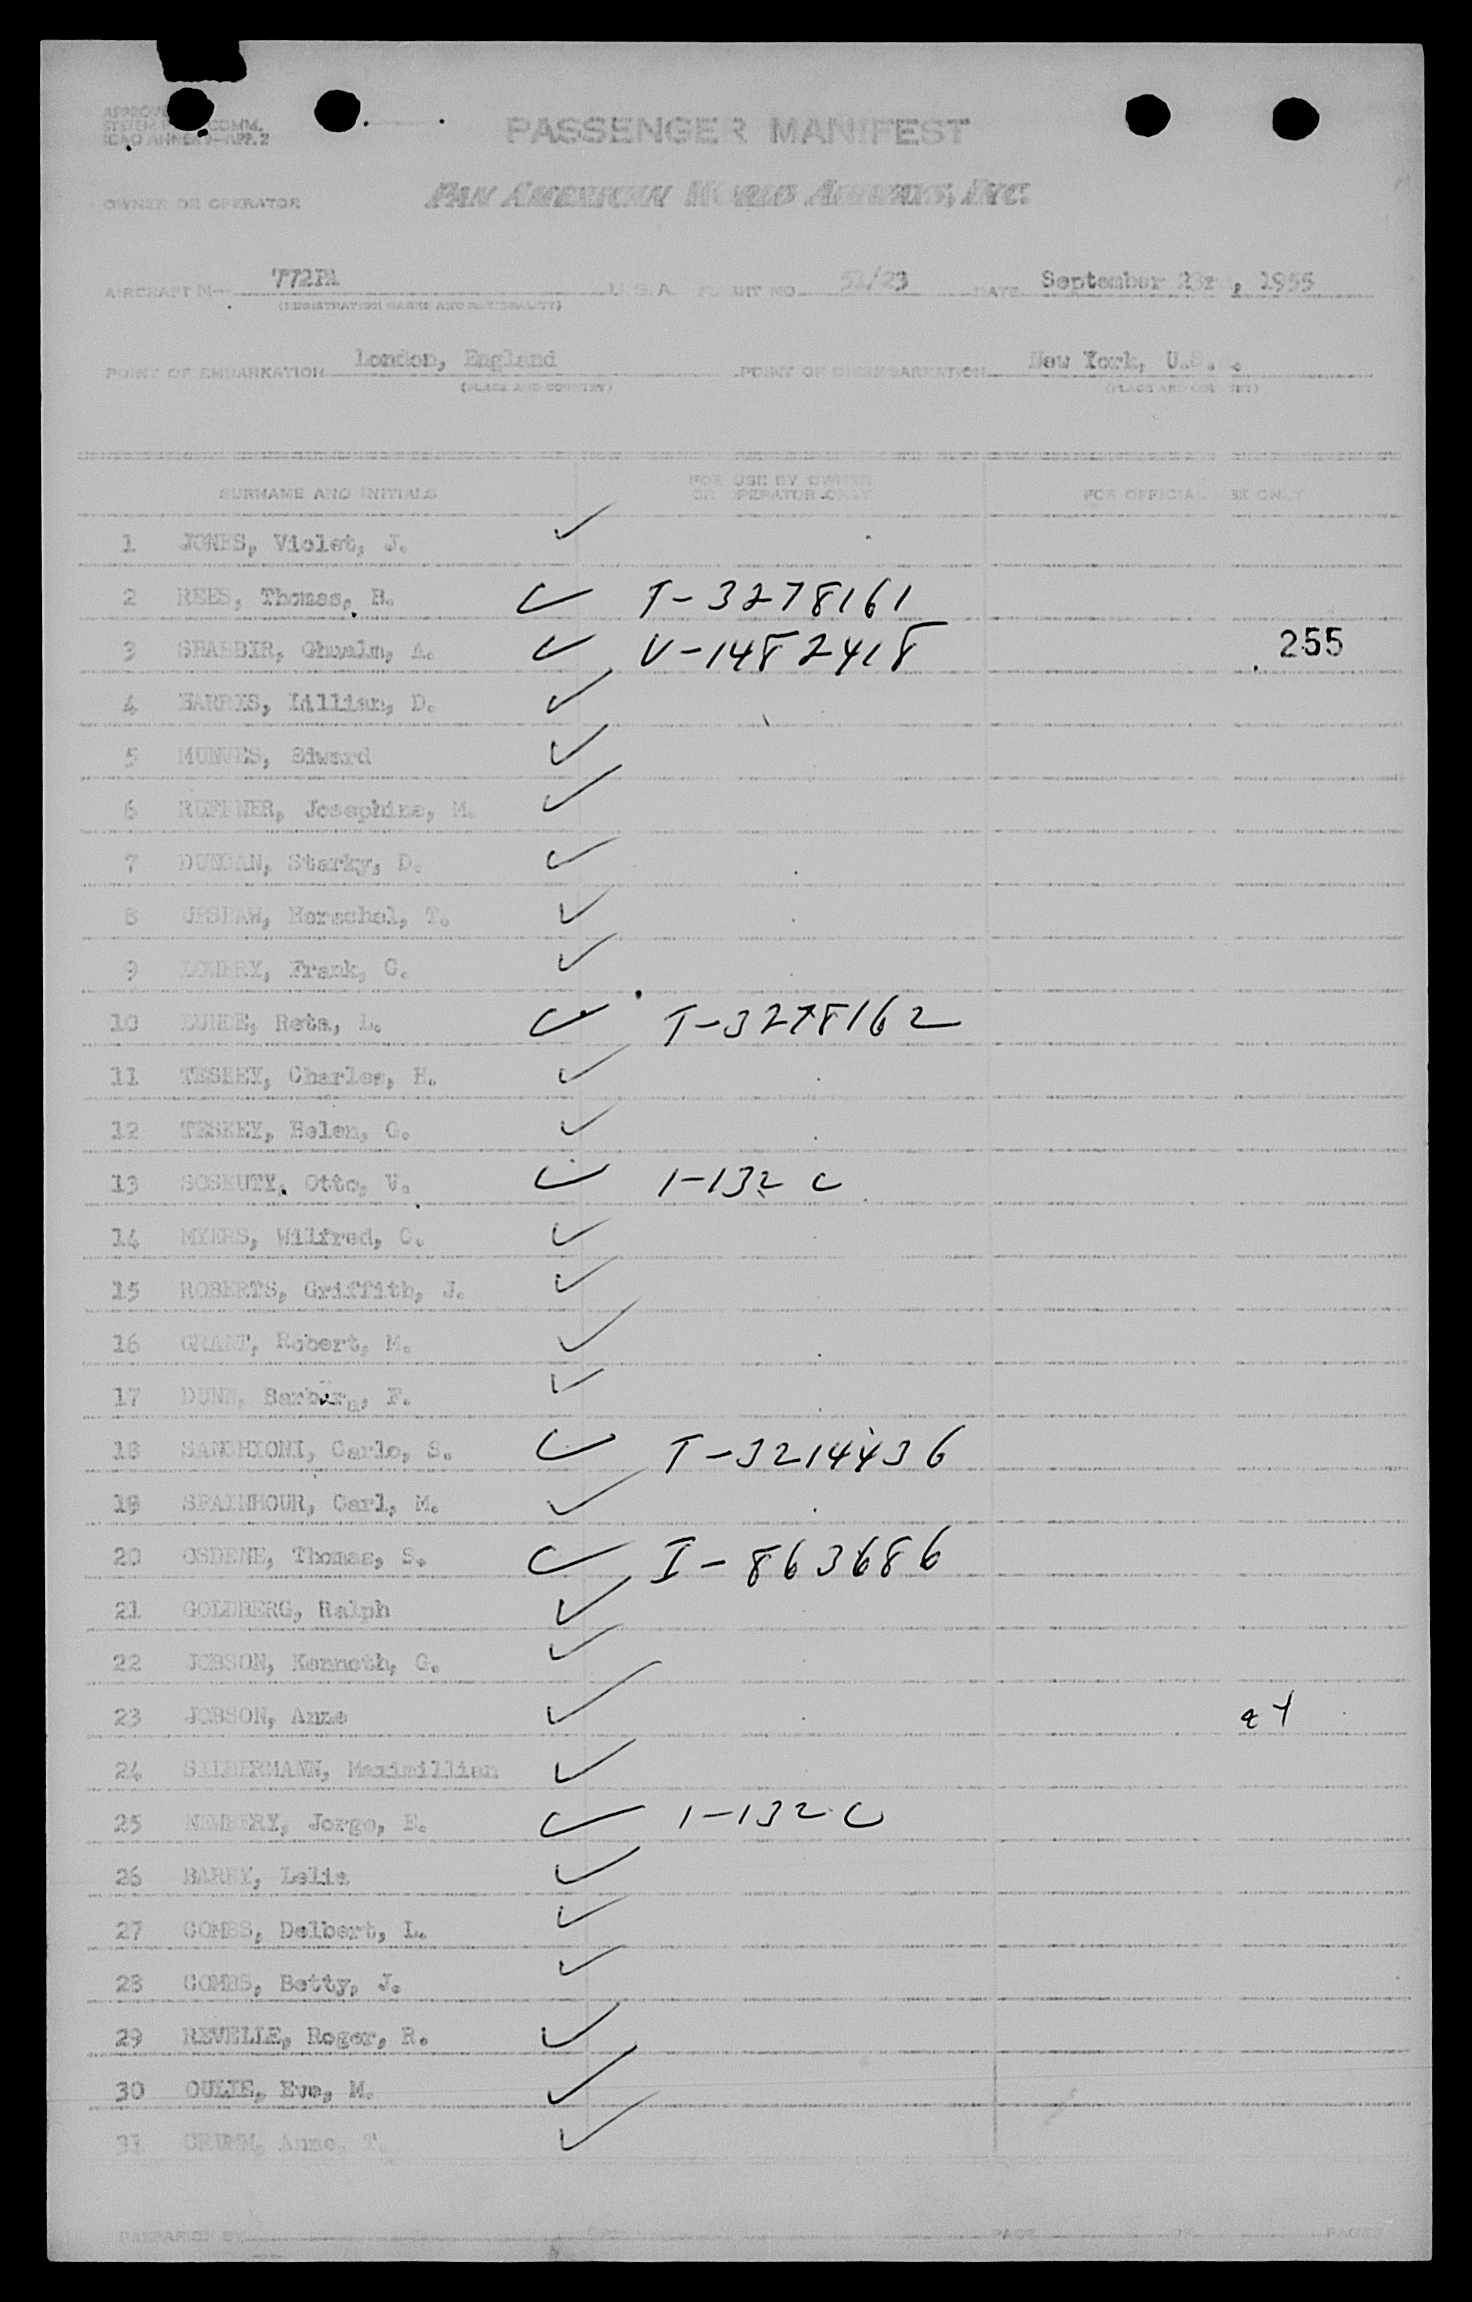 PASSENGER MANIFEST
PAN AMERICAN WORLD AIRWAYS, INC.
OWNER OR OPERATOR
AIRCRAFT N- 772PA U.S.A. FLIGHT NO. /23 DATE September 23rd, 1955
(REGISTRATION MARKS AND NATIONALITY)
POINT OF EMBARKATION London, England POINT OF DISEMBARKATION New York, U.S.A.
(PLACE AND COUNTRY) (PLACE AND COUNTRY)
SURNAME AND INITIALS FOR USE BY OWNER OR OPERATOR ONLY FOR OFFICIAL USE ONLY
1 JONES, Violet, J. ✓
2 REES, Thomas, B. ✓ T-3278161
3 SHABBIR, A. ✓ V-1482418 255
4 Lillian, D. ✓
5 Edward ✓
6 Josephine, M. ✓
7 DUNCAN, Starky, D. ✓
8 UPSHAW, Herschel, T. ✓
9 Frank, C. ✓
10 Reta, L. ✓ T-3278162
11 TESKEY, Charles, H. ✓
12 TESKEY, Helen, G. ✓
13 Otto, V. ✓ 1-132 C
14 MYERS, Wilfred, C. ✓
15 ROBERTS, Griffith, J. ✓
16 GRANT, Robert, M. ✓
17 DUNN, Barbara, F. ✓
18 SANGHIONI, Carlo, S. ✓ T-3214436
19 SPAINHOUR, Carl, M. ✓
20 OSDENE, Thomas, S. ✓ I-863686
21 GOLDBERG, Ralph ✓
22 JOBSON, Kenneth, G. ✓
23 JOBSON, Anne ✓
24 SILBERMANN, Maximillian ✓
25 NEWBERY, Jorge, E. ✓ 1-132 C
26 Lelia ✓
27 COMBS, Delbert, L. ✓
28 COMBS, Betty, J. ✓
29 REVELLE, Roger, R. ✓
30 Eve, M. ✓
31 Anne, T. ✓
PREPARED BY PAGE OF PAGES